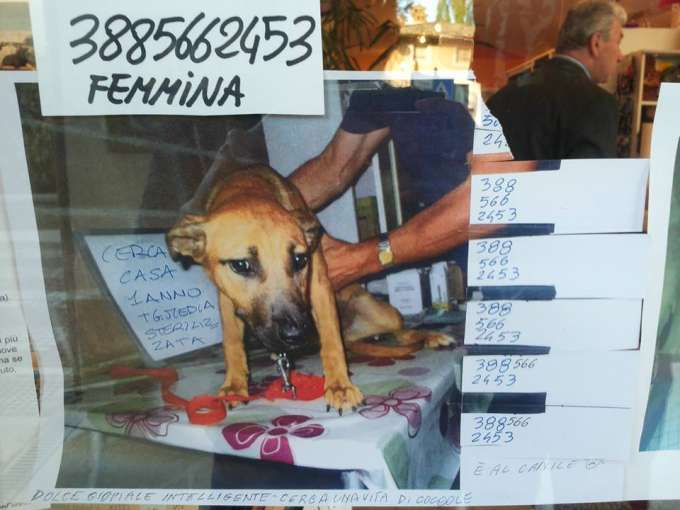 3885662453
FEMMINA
CERCA
CASA
1 ANNO
TG.MEDIA
STERILIZ
ZATA
2453
388
566
2453
388
566
2453
388
566
2453
388 566
2453
388 566
2453
È AL CANILE
DOLCE GIOVIALE INTELLIGENTE - CERCA UNA VITA DI COCCOLE